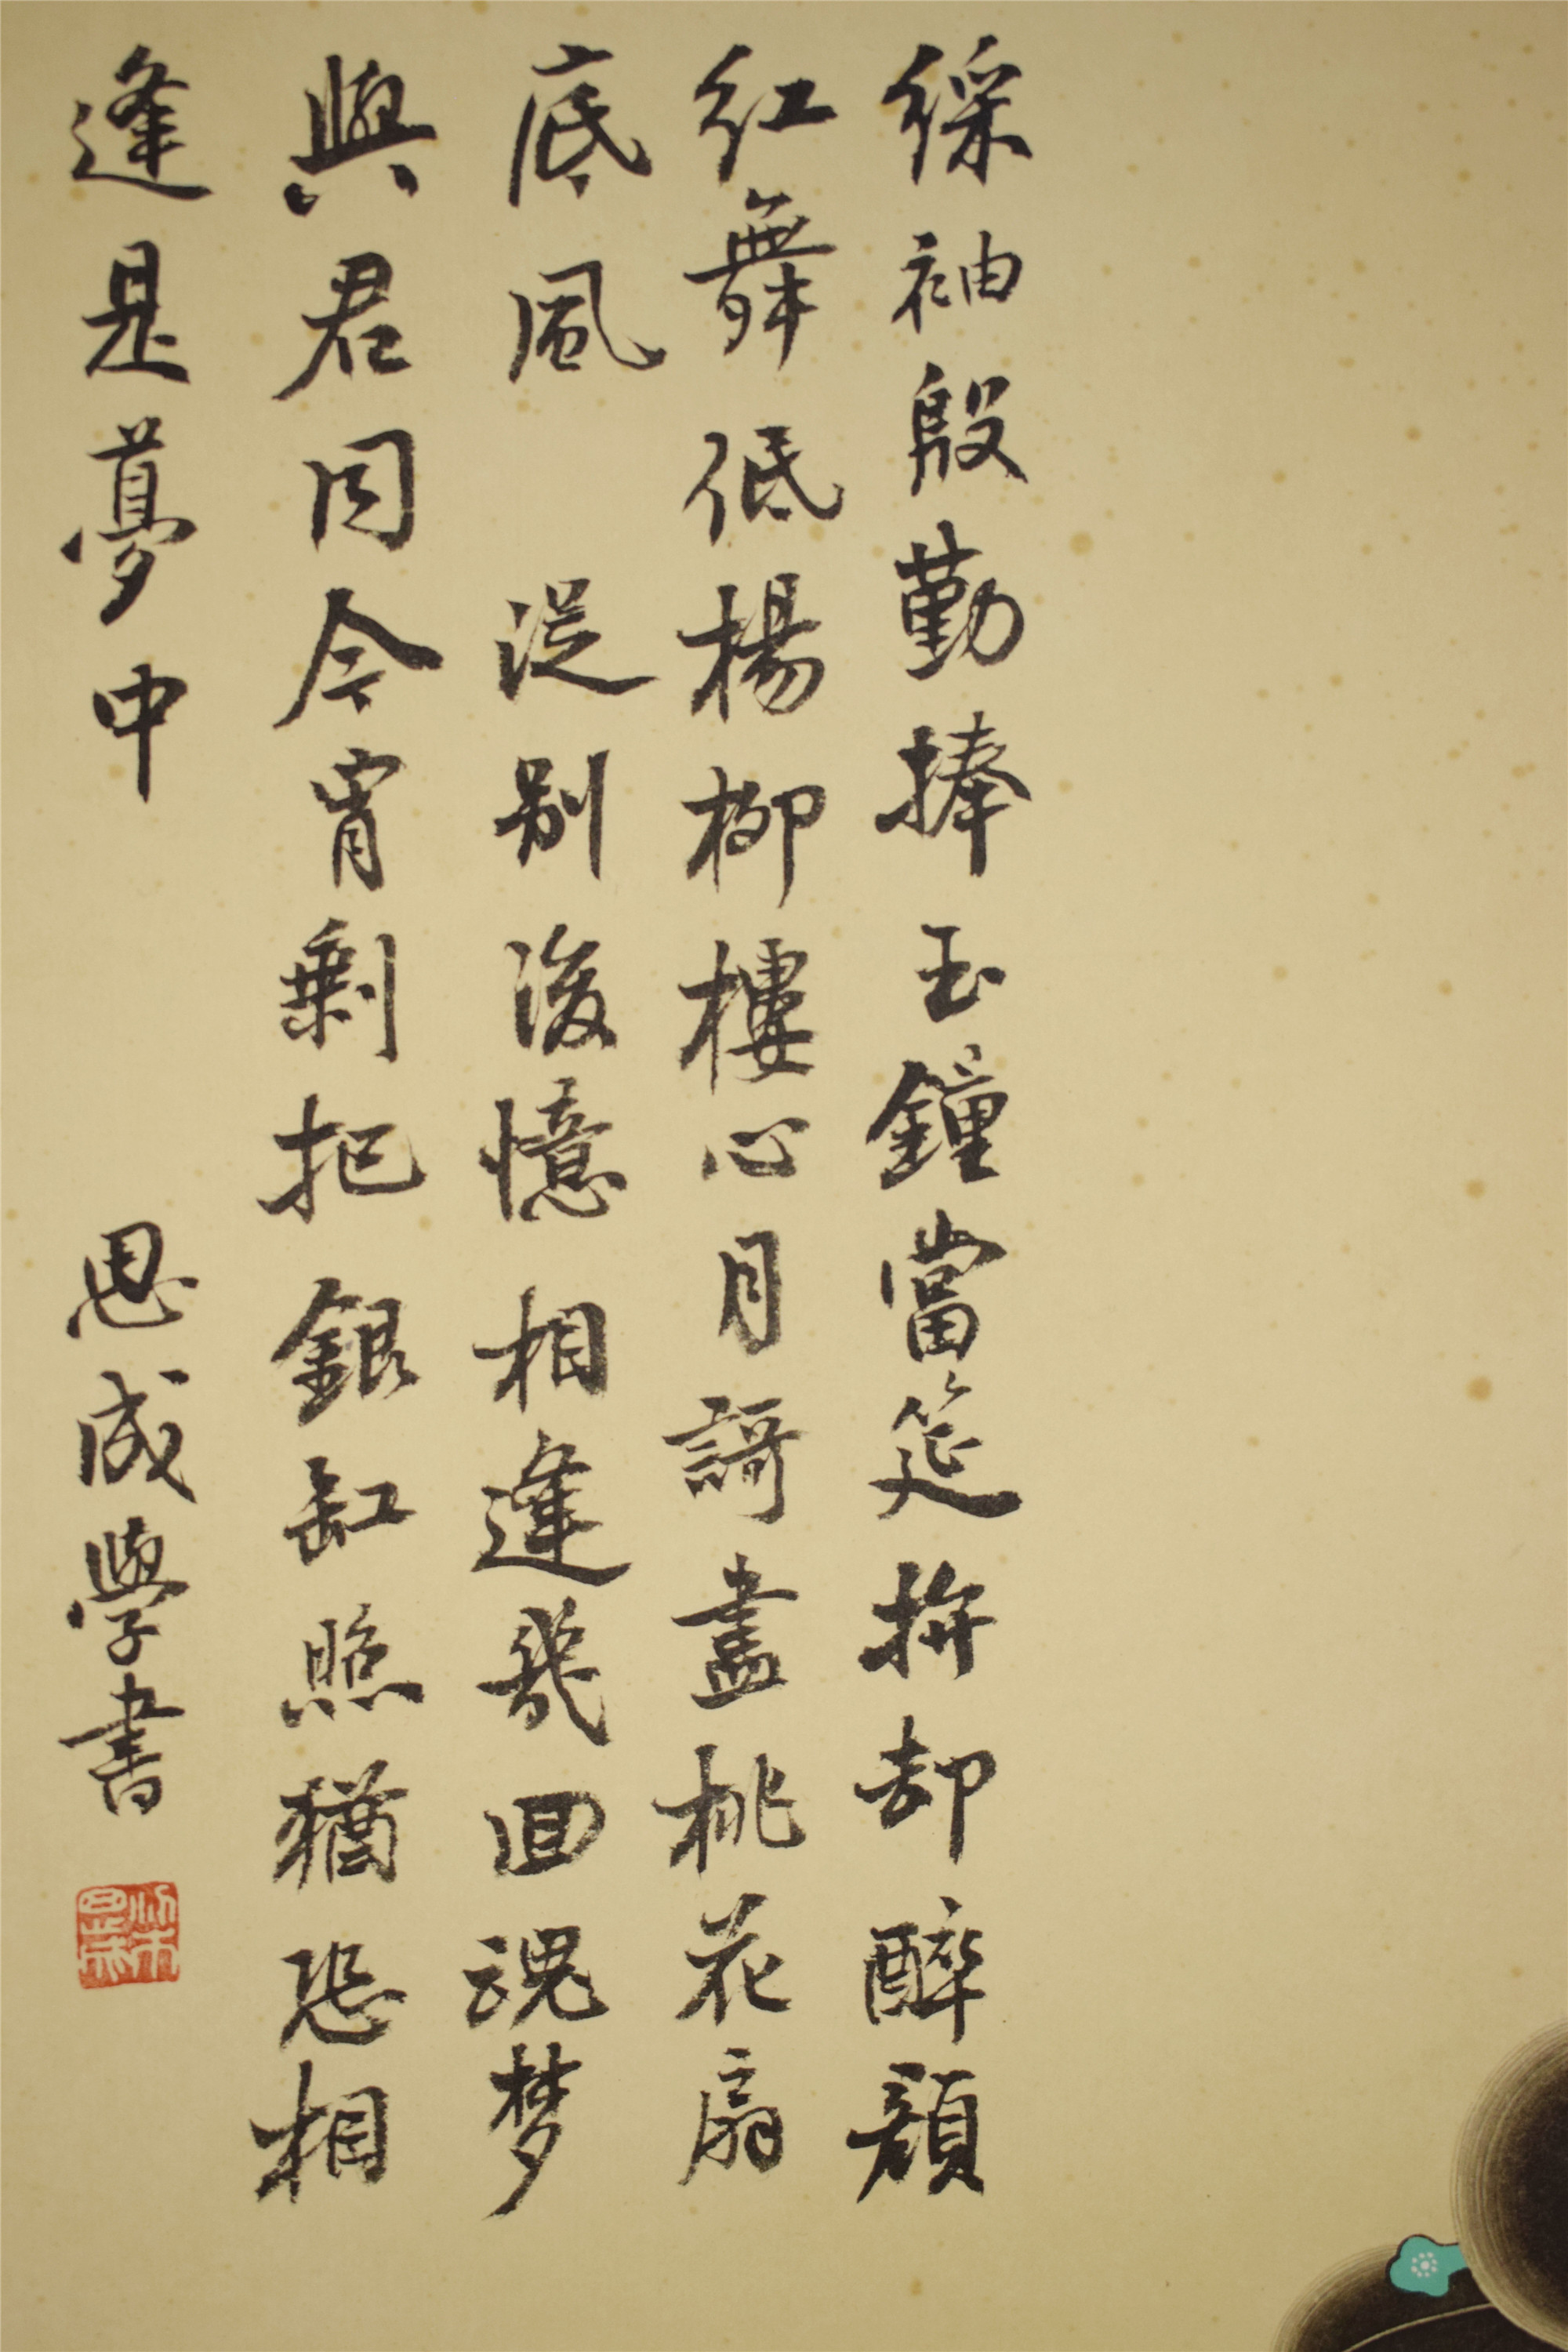 綵袖殷勤捧玉鐘當筵拚却醉顏
紅舞低楊柳樓心月謌盡桃花扇
底風 從别後憶相逢幾回魂梦
與君同今宵剩把銀缸照猶恐相
逢是夢中 恩成學書